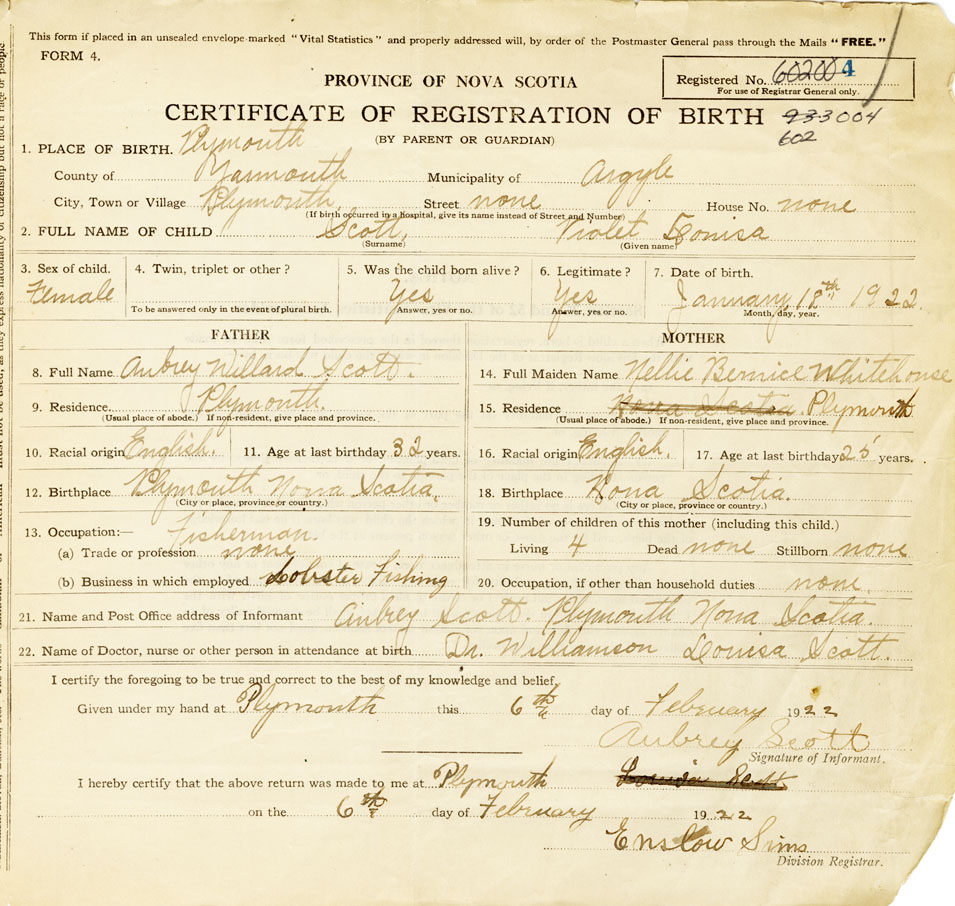 This form if placed in an unsealed envelope marked "Vital Statistics" and properly addressed will, by order of the Postmaster General pass through the Mails "FREE."
FORM 4.
PROVINCE OF NOVA SCOTIA
Registered No. 602004
For use of Registrar General only.
CERTIFICATE OF REGISTRATION OF BIRTH 933004
602
(BY PARENT OR GUARDIAN)
1. PLACE OF BIRTH. Plymouth
County of Yarmouth Municipality of Argyle
City, Town or Village Plymouth, Street none House No. none
(If birth occurred in a hospital, give its name instead of Street and Number)
2. FULL NAME OF CHILD Scott, Violet Louisa
(Surname) (Given name)
3. Sex of child. 4. Twin, triplet or other? 5. Was the child born alive? 6. Legitimate? 7. Date of birth.
Female Yes Yes January, 18th 1922.
To be answered only in the event of plural birth. Answer, yes or no. Answer, yes or no. Month, day, year.
FATHER MOTHER
8. Full Name Aubrey Willard Scott. 14. Full Maiden Name Nellie Bernice Whitehouse
9. Residence Plymouth. 15. Residence Nova Scotia. Plymouth
(Usual place of abode.) If non-resident, give place and province. (Usual place of abode.) If non-resident, give place and province.
10. Racial origin English. 11. Age at last birthday 32 years. 16. Racial origin English. 17. Age at last birthday 25 years.
12. Birthplace Plymouth Nova Scotia. 18. Birthplace Nova Scotia.
(City or place, province or country.) (City or place, province or country.)
13. Occupation:— Fisherman. 19. Number of children of this mother (including this child.)
(a) Trade or profession none Living 4 Dead none Stillborn none
(b) Business in which employed Lobster Fishing 20. Occupation, if other than household duties none.
21. Name and Post Office address of Informant Aubrey Scott. Plymouth Nova Scotia.
22. Name of Doctor, nurse or other person in attendance at birth Dr. Williamson Louisa Scott.
I certify the foregoing to be true and correct to the best of my knowledge and belief.
Given under my hand at Plymouth this 6th day of February 1922
Aubrey Scott
Signature of Informant.
I hereby certify that the above return was made to me at Plymouth Louisa Scott
on the 6th day of February 1922
Enslow Sims
Division Registrar.